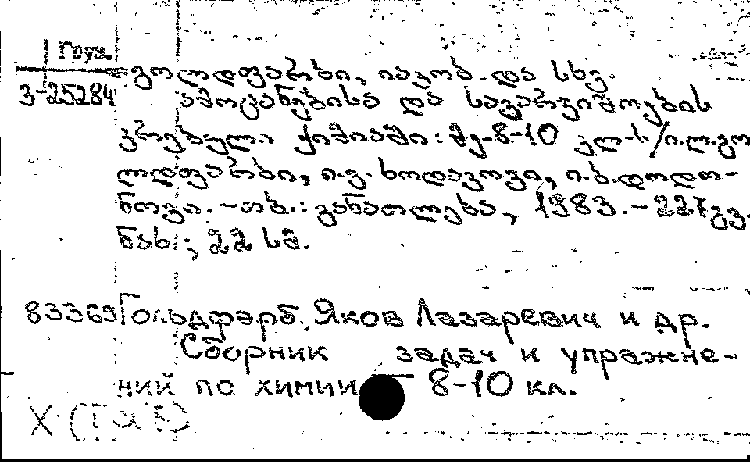 Груз.
3-25284
გოლდფარბი, იაკობ და სხვ.
ამოცანებისა და სავარჯიშოების
კრებული ქიმიაში: მე-8-10 კლ-ს/ი.ლ.გო
ლდფარბი, ი.ვ. ხოდაკოვი, ი.ბ.დოდო-
ნოვი. -თბ.: განათლება, 1983. - 227გვ.
ნახ.; 22 სმ.
83369 Гольдфарб, Яков Лазаревич и др.
Сборник задач и упражне-
ний по химии 8-10 кл.